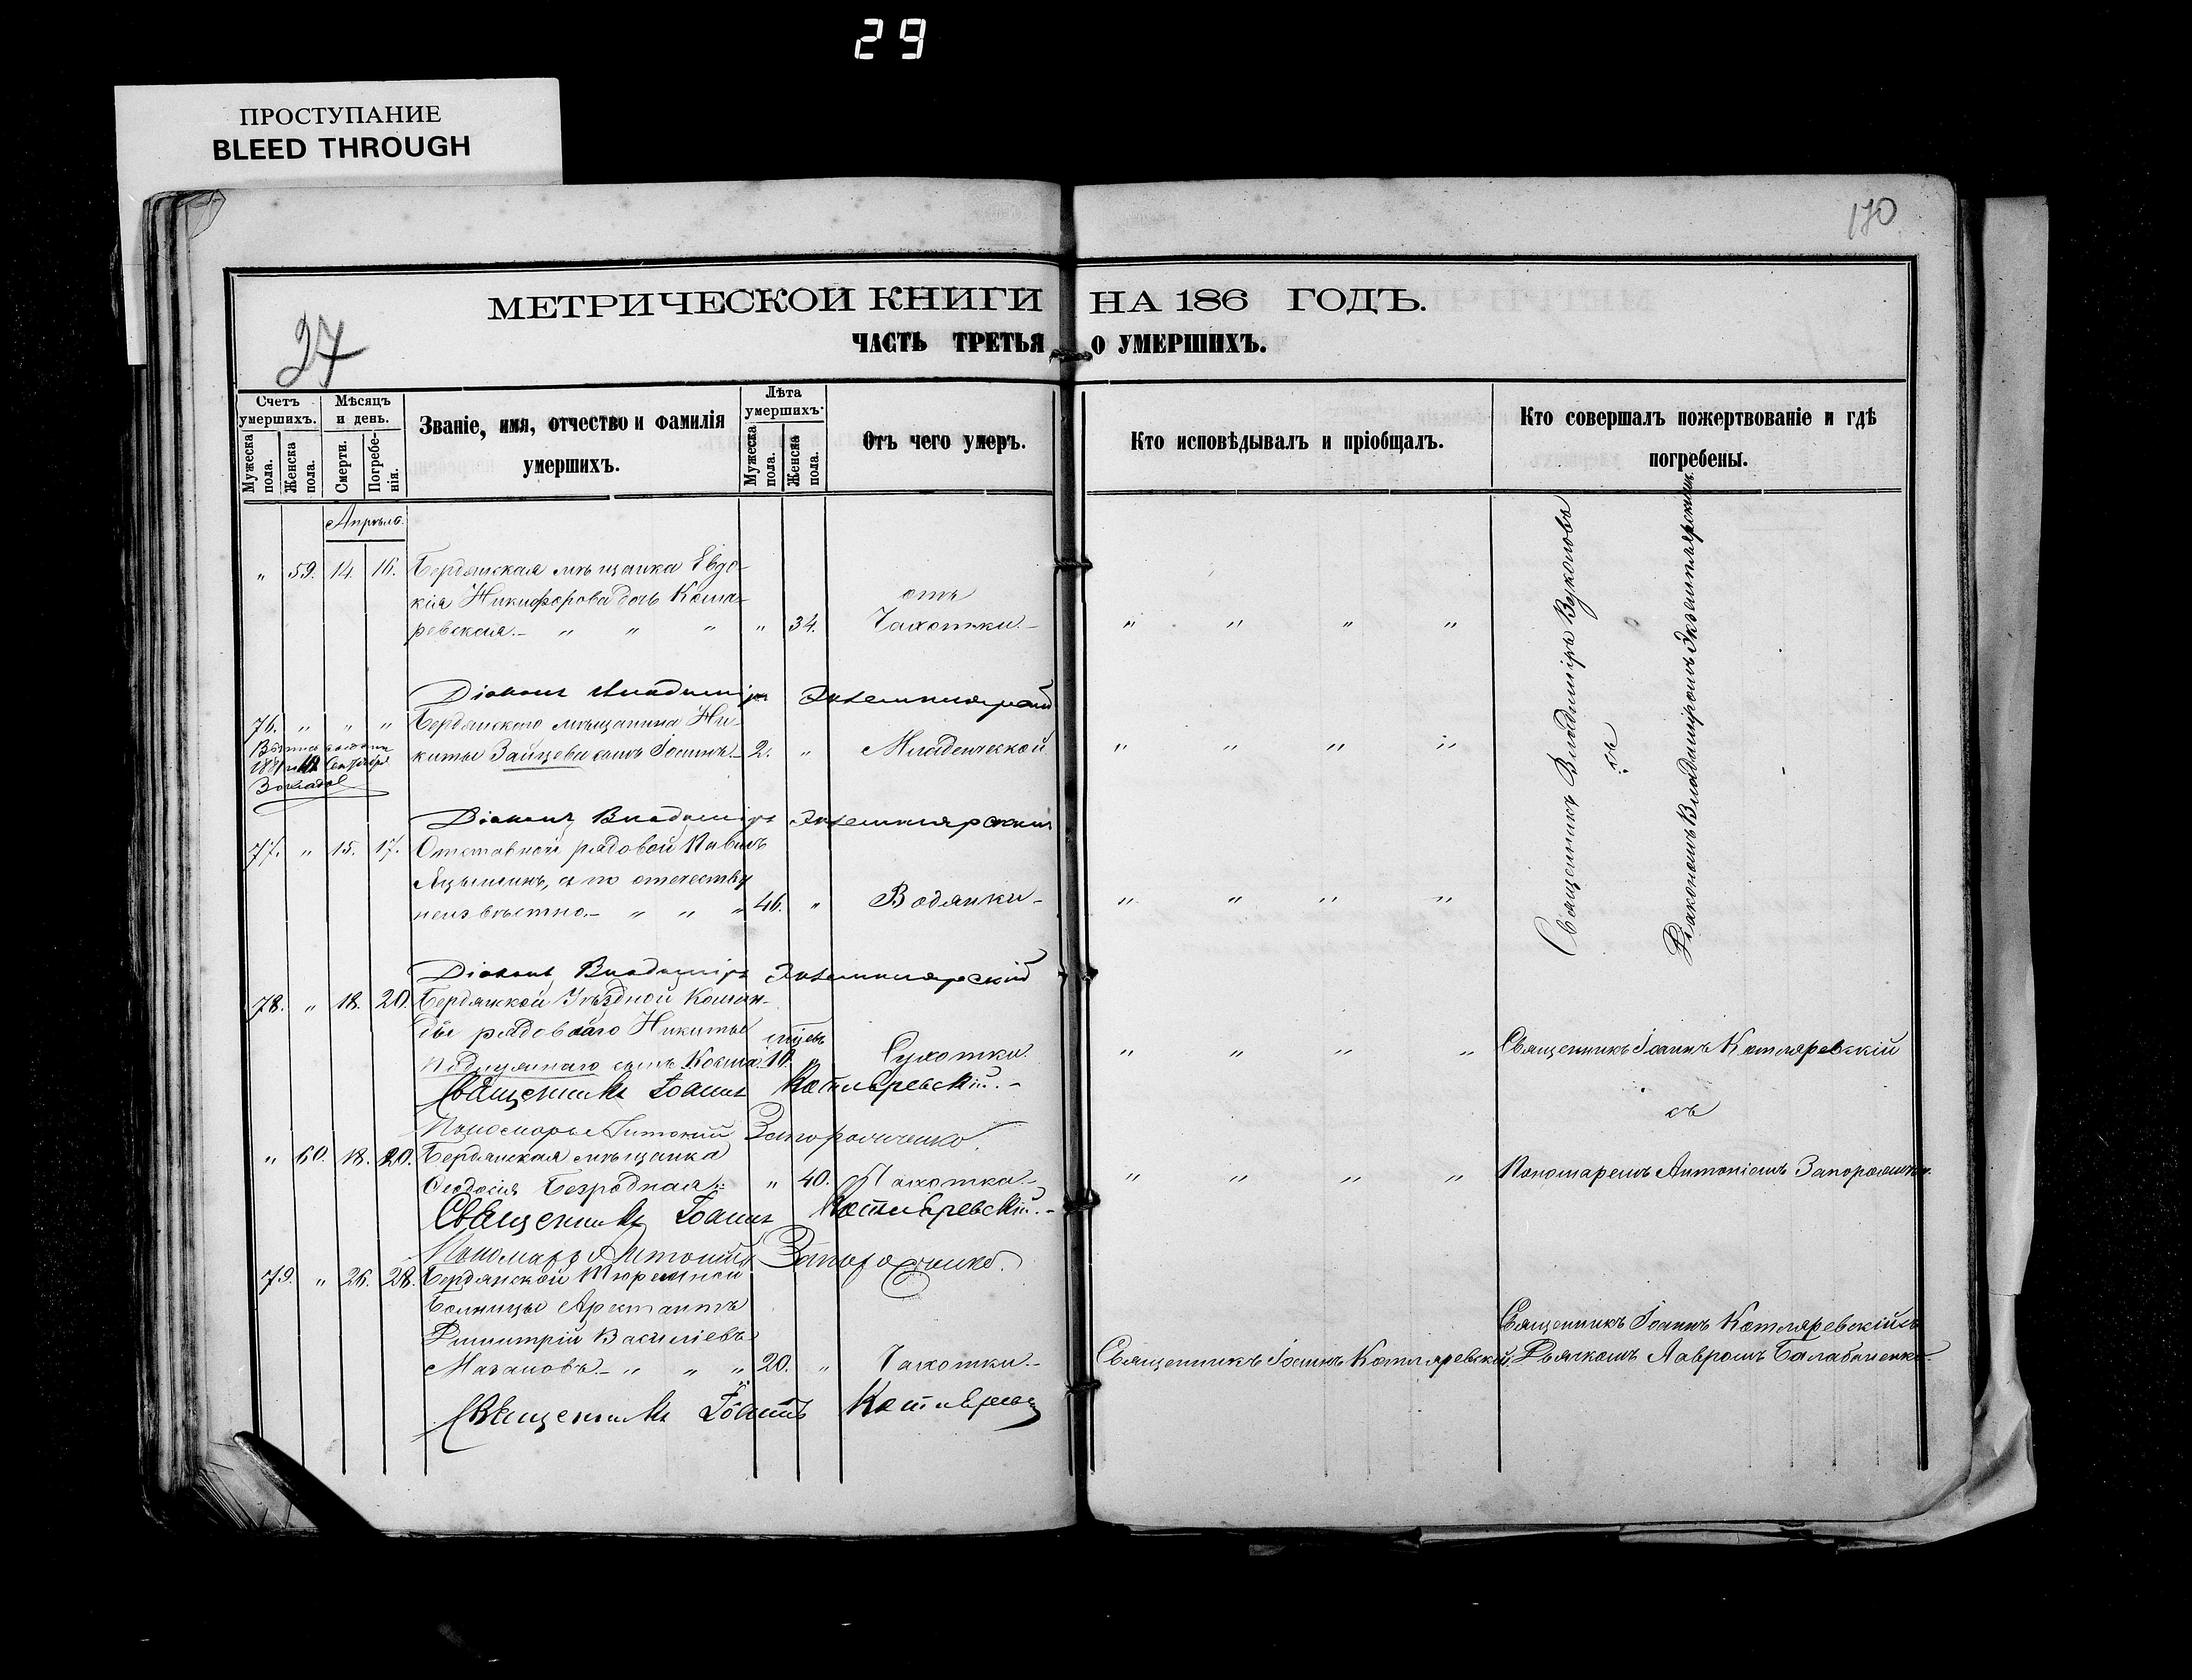 29
ПРОСТУПАНИЕ
BLEED THROUGH
170
27
МЕТРИЧЕСКОЙ КНИГИ НА 186 ГОДЪ.
ЧАСТЬ ТРЕТЬЯ О УМЕРШИХЪ.
Счетъ умершихъ.
Мужеска пола.
Женска пола.
Мѣсяцъ и день.
Смерти.
Погребенія.
Званіе, имя, отчество и фамилія умершихъ.
Лѣта умершихъ.
Мужеска пола.
Женска пола.
Отъ чего умеръ.
Кто исповѣдывалъ и пріобщалъ.
Кто совершалъ пожертвованіе и гдѣ погребены.
Апрѣль.
" 59. 14. 16. Бердянская мѣщанка Евдо-
кія Никифорова дочь Кома- отъ
ревская.- " " " " 34. Чахотки.- " " " "
Діаконъ Владиміръ Экземплярскій
76. " " " Бердянскаго мѣщанина Ни-
киты Зайцева сынъ Іоаннъ.- 2. " Младенческой " " " "
Діаконъ Владиміръ Экземплярскій
77. " 15. 17. Отставной рядовой Павелъ
а по отечеству
неизвѣстно.- " " " 46. " Водянки- " " " "
Священникъ Владиміръ Вуколовъ
съ
Діакономъ Владиміромъ Экземплярскимъ
Діаконъ Владиміръ Экземплярскій
78. " 18. 20. Бердянской Уѣздной Коман-
ды рядоваго Никиты
сынъ Косма 10. мѣсцевъ " Сухотки " " " " Священникъ Іоаннъ Котляревскій
Священникъ Іоаннъ Котляревскій.-
съ
Пономарь Антоній Запорожченко
" 60. 18. 20. Бердянская мѣщанка
Ѳеодосія Безродная.- " 40. Чахотка.- " " " " Пономаремъ Антоніемъ
Священникъ Іоаннъ Котляревскій.-
Пономарь Антоній Запорожченко.
79. " 26. 28. Бердянской Тюремной
Больницы Арестантъ
Димитрій Васильевъ Священникъ Іоаннъ Котляревскій съ
Мазановъ.- " " " 20. " Чахотки.- Священникъ Іоаннъ Котляревскій. Дьячкомъ Лавромъ Балабаненко.
Священникъ Іоаннъ